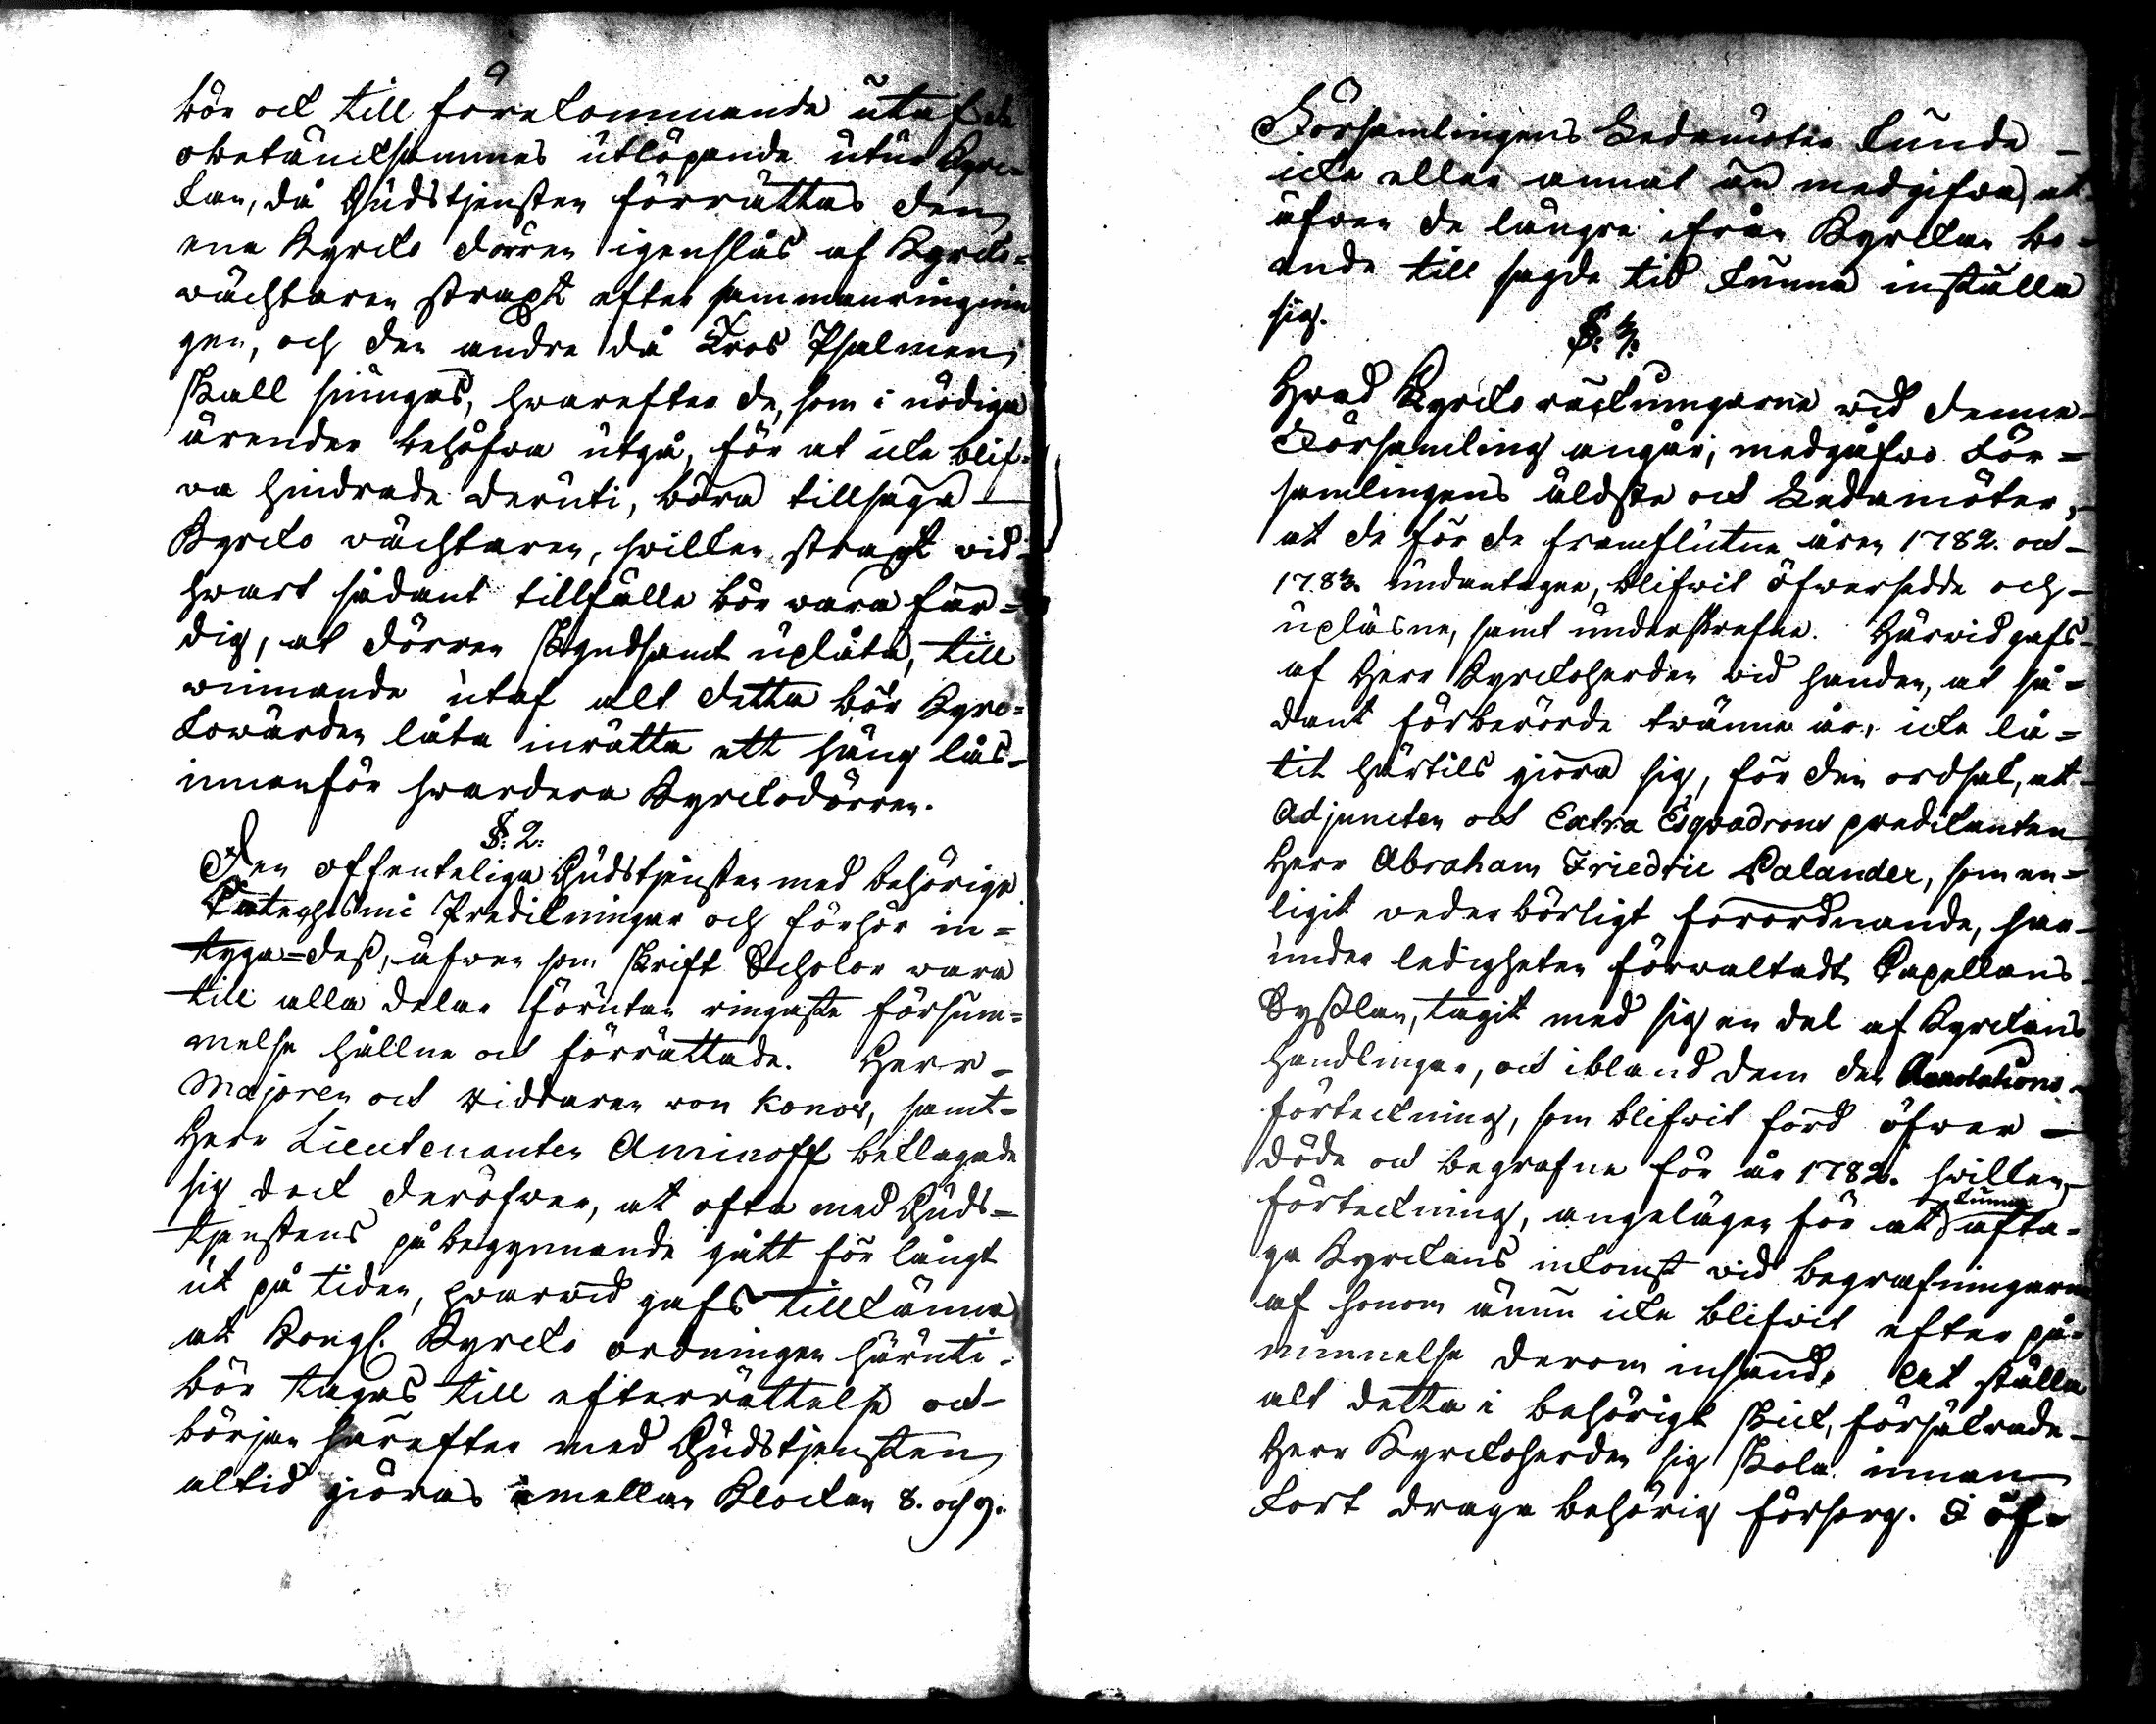 bör ock till förekommande utaf de
obetäncksammas utlöpande utur Kyrc-
kan, då Gudstjensten förrättas den
ena Kyrcko dörren igenslås af Kyrcko-
wächtaren straxt efter sammanringnin
gen, och den andra då Tros Psalmen
skall siungas, hwarefter de, som i nödiga
ärender behöfva utgå, för at icke blif-
va hindrade deruti, böra tillsäga
Kyrcko wächtaren, hvilken straxt vid
hwart sådant tillfälle bör wara fär-
dig, at dörren skyndsamt uplåta, till
winnande utaf alt detta bör Kyrc-
kowärden låta inrätta ett häng lås
innanför hwardera Kyrckodörren.
§: 2:
Den offenteliga Gudstjensten med behöriga
Catechismi Predikningar och förhör in-
tyga-deß, äfwen som skrift Scholor wara
till alla delar förutan ringaste försum-
melse hållne och förrättade. Herr
Majoren och Riddaren von Konow, samt
Herr Lieutenanten Aminoff beklagade
sig dock deröfwer, at ofta med Guds-
tjenstens på begynnande gått för långt
ut på tiden, hvarwid gafs tillkänna
at Kongl. Kyrcko ordningen häruti
bör tagas till efterrättelse och
början härefter med Gudstjensten
altid giöras emellan Klockan 8. och 9.
Församlingens Ledamöter kunde
icke eller annat än medgifva, at
äfwen de längre ifrån Kyrckan bo-
ende till sagde tid kunna inställa
sig.
§. 3.
Hvad Kyrcko räckningarne wid denna
Församling angår, medgåfvo För-
samlingens äldste och Ledamöter,
at de för de framflutne åren 1782. och
1783. undantagne, blifvit öfwersedde och
upläsne, samt underskrefne. Härwid gafs
af Herr Kyrckoherden vid handen, at så-
dant förberörde twänne år, icke lå-
tit härtils giöra sig, för den ordsak, at
Adjuncten och Extra Esqvadrons predikanten
Herr Abraham Friedric Palander, som en-
ligit vederbörligt förordnande, har
under ledigheten förwaltadt Capellans
Syßlan, tagit med sig en del af Kyrckans
handlingar, och ibland dem den Annotations
förteckning, som blifvit förd öfwer
döde och begrafne för år 1782. hvilken
förteckning, angelägen för att kunna afta-
ga Kyrckans inkomst vid begrafningarne
af honom ännu icke blifvit efter på-
minnelse derom insänd. At ställa
alt detta i behörigt skick, försäkrade
Herr Kyrckoherden sig skola innan
kort draga behörig försorg. I öf-